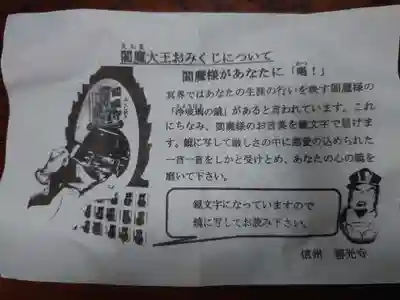 えんま
閻魔大王おみくじについて
閻魔様があなたに「喝！」
冥界ではあなたの生涯の行いを映す閻魔様の
「浄玻璃の鏡」があると言われています。これ
にちなみ、閻魔様のお言葉を鏡文字で届けま
す。鏡に写して厳しさの中に慈愛の込められた
一言一言をしかと受けとめ、あなたの心の鏡を
磨いて下さい。
鏡文字になっていますので
鏡に写してお読み下さい。
信州 善光寺